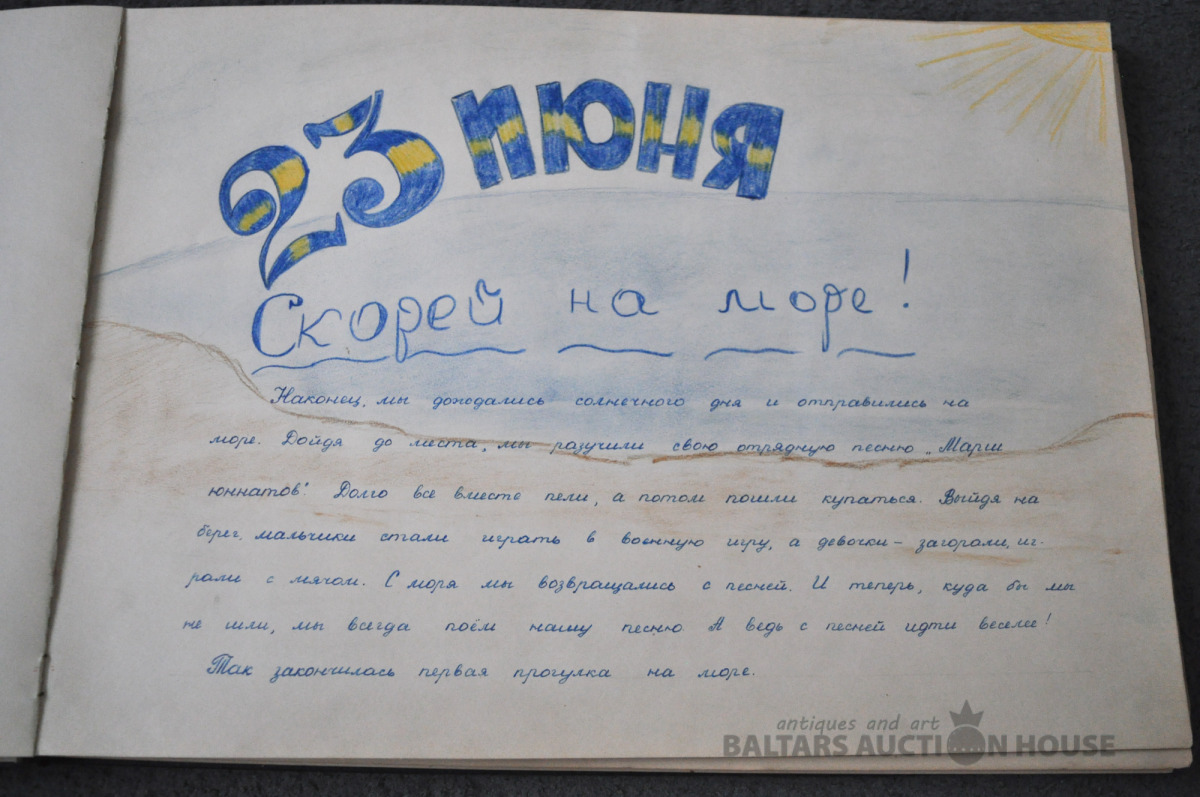 23 июня
Скорей на море!
Наконец, мы дождались солнечного дня и отправились на
море. Дойдя до места, мы разучили свою отрядную песню „Марш
юннатов". Долго все вместе пели, а потом пошли купаться. Выйдя на
берег, мальчики стали играть в военную игру, а девочки – загорали, иг-
рали с мячом. С моря мы возвращались с песней. И теперь, куда бы мы
не шли, мы всегда поём нашу песню. А ведь с песней идти веселее!
Так закончилась первая прогулка на море.
antiques and art
BALTARS AUCTION HOUSE